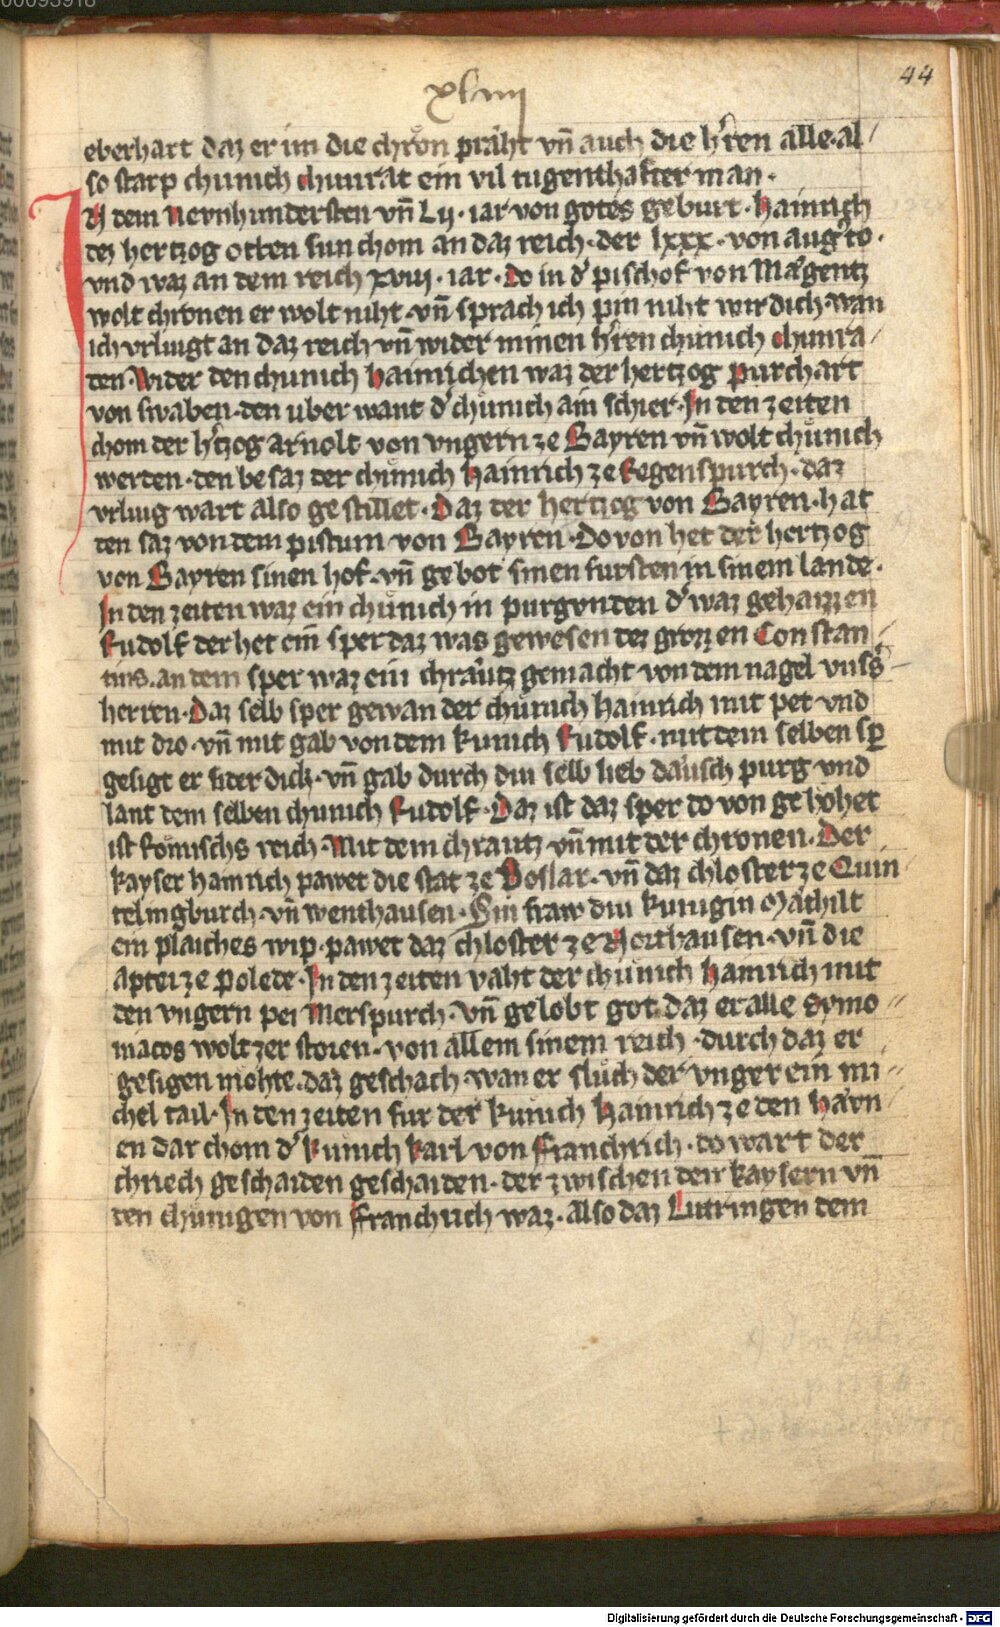 00093918
44
xlıııı
eberhart daz er im die chron präht vn̄ auch die h̕ren alle·al/
so starp chunich chunrat ein vil tugenthafter man·
IN dem Nevnhundersten vn̄ Lij·iar von gotes geburt·hainrich
dez hertzog otten sun chom an daz reich·der lxxx·von aug̕to·
vnd waz an dem reich xviij·iar·Do in d̕ pischof von Mägentz
wolt chronen er wolt niht·vn̄ sprach ich pin niht wirdich·wan
ich vrliugt an daz reich vn̄ wider minen h̕ren chunich chunra/
ten·Wider den chunich hainrichen waz der hertzog purchart
von swaben·den uber want d̕ chůnich ain schier·In den zeiten
chom der h̕tzog arnolt von vngern ze Bayren vn̄ wolt chůnich
werten·den besaz der chůnich hainrich ze Regenspurch·daz
vrliug wart also gestillet·Daz der hertzog von Bayren·hat
ten saz von dem pistum von Bayren·Do von het der hertzog
von Bayren sinen hof·vn̄ gebot sinen fursten in sinem lande·
In den zeiten waz ein chůnich in purgonden d̕ waz gehaizzen
Rudolf der het ein sper daz was gewesen dez grozzen Constan/
tins·an dem sper waz ein chräutz gemacht von dem nagel vnss̕s
herren·Daz selb sper gewan der chůnich hainrich mit pet vnd
mit dro·vn̄ mit gab von dem kunich Rudolf·mit dem selben sp̄
gesigt er sider dick·vn̄ gab durch diu selb lieb däusch purg vnd
lant dem selben chunich Rudolf·Daz ist daz sper do von gehohet
ist Römischs reich·Mit dem chrautz·vn̄ mit der chronen·Der
kayser hainrich pawet die stat ze Goslar·vn̄ daz chloster ze Quin/
telingburch·vn̄ wenthausen·Sin fraw diu kunigin Mächilt
ein plaiches wip·pawet daz chloster ze Northausen·vn̄ die
aptei ze polede·In den zeiten vaht der chunich hainrich mit
den vngern pei Merspurch·vn̄ gelobt got·daz er alle Symo//
macos wolt zerstoren·von allem sinem reich·durch daz er
gesigen mohte·daz geschach·wan er slůch der vnger ein mi//
chel tail·In den zeiten fur der kunich hainrich ze den harn//
en dar chom d̕ kunich karl von Franchrich·do wart der
chriech geschaiden geschaiden·der zwischen den kaysern vn̄
den chůnigen von Franchrich waz·also daz Lutringen dem
Digitalisierung gefördert durch die Deutsche Forschungsgemeinschaft - DFG